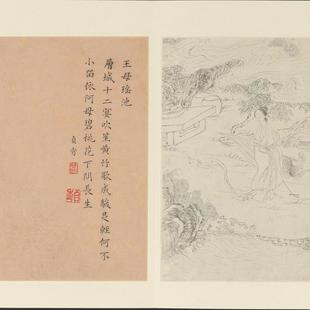 王母瑤池
層城十二宴吹笙黃竹歌成駿是輕何不
小留依阿母碧桃花下閱長生
貞秀